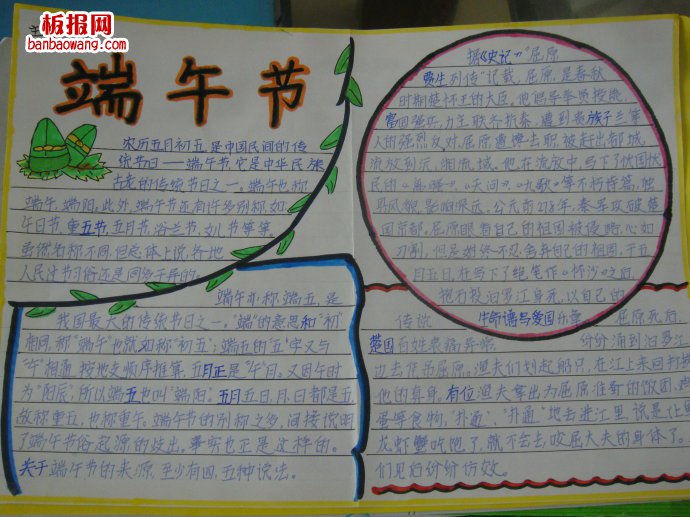 板报网
banbaowang.com
端午节
农历五月初五,是中国民间的传
统节日——端午节,它是中华民族
古老的传统节日之一。端午也称
端午,端阳。此外,端午节还有许多别称,如:
午日节、重五节,五月节、浴兰节、女儿节等等。
虽然名称不同,但总体上说,各地
人民过节习俗还是同多于异的。
端午亦称端五,是
我国最大的传统节日之一。"端"的意思和"初"
相同,称"端午"也就如称"初五";端五的"五"字又与
"午"相通,按地支顺序推算,五月正是"午"月。又因午时
为"阳辰",所以端五也叫"端阳"。五月五日,月、日都是五,
故称重五,也称重午。端午节的别称之多,间接说明
了端午节俗起源的歧出。事实也正是这样的。
关于端午节的来源,至少有四、五种说法。
据《史记》"屈原
贾生列传"记载,屈原,是春秋
时期楚怀王的大臣。他倡导举贤授能,
富国强兵,力主联齐抗秦,遭到贵族子兰等
人的强烈反对,屈原遭馋去职,被赶出都城,
流放到沅、湘流域。他在流放中,写下了忧国忧
民的《离骚》、《天问》、《九歌》等不朽诗篇,独
具风貌,影响深远。公元前278年,秦军攻破楚
国京都。屈原眼看自己的祖国被侵略,心如
刀割,但是始终不忍舍弃自己的祖国,于五
月五日,在写下了绝笔作《怀沙》之后,
抱石投汨罗江身死,以自己的
传说 生命谱写爱国乐章 屈原死后,
楚国百姓哀痛异常 纷纷涌到汨罗江
边去凭吊屈原。渔夫们划起船只,在江上来回打捞
他的真身。有位渔夫拿出为屈原准备的饭团、鸡
蛋等食物,"扑通"、"扑通"地丢进江里,说是让鱼
龙虾蟹吃饱了,就不会去咬屈大夫的身体了。
们见后纷纷仿效。